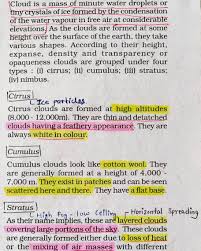 Cloud is a mass of minute water droplets or
tiny crystals of ice formed by the condensation
of the water vapour in free air at considerable
elevations. As the clouds are formed at some
height over the surface of the earth, they take
various shapes. According to their height,
expanse, density and transparency or
opaqueness clouds are grouped under four
types : (i) cirrus; (ii) cumulus; (iii) stratus;
(iv) nimbus.
Cirrus Ice particles
Cirrus clouds are formed at high altitudes
(8,000 - 12,000m). They are thin and detatched
clouds having a feathery appearance. They are
always white in colour.
Cumulus
Cumulus clouds look like cotton wool. They
are generally formed at a height of 4,000 -
7,000 m. They exist in patches and can be seen
scattered here and there. They have a flat base.
Stratus High Fog - low Ceiling - Horizontal Spreading
As their name implies, these are layered clouds
covering large portions of the sky. These clouds
are generally formed either due to loss of heat
or the mixing of air masses with different